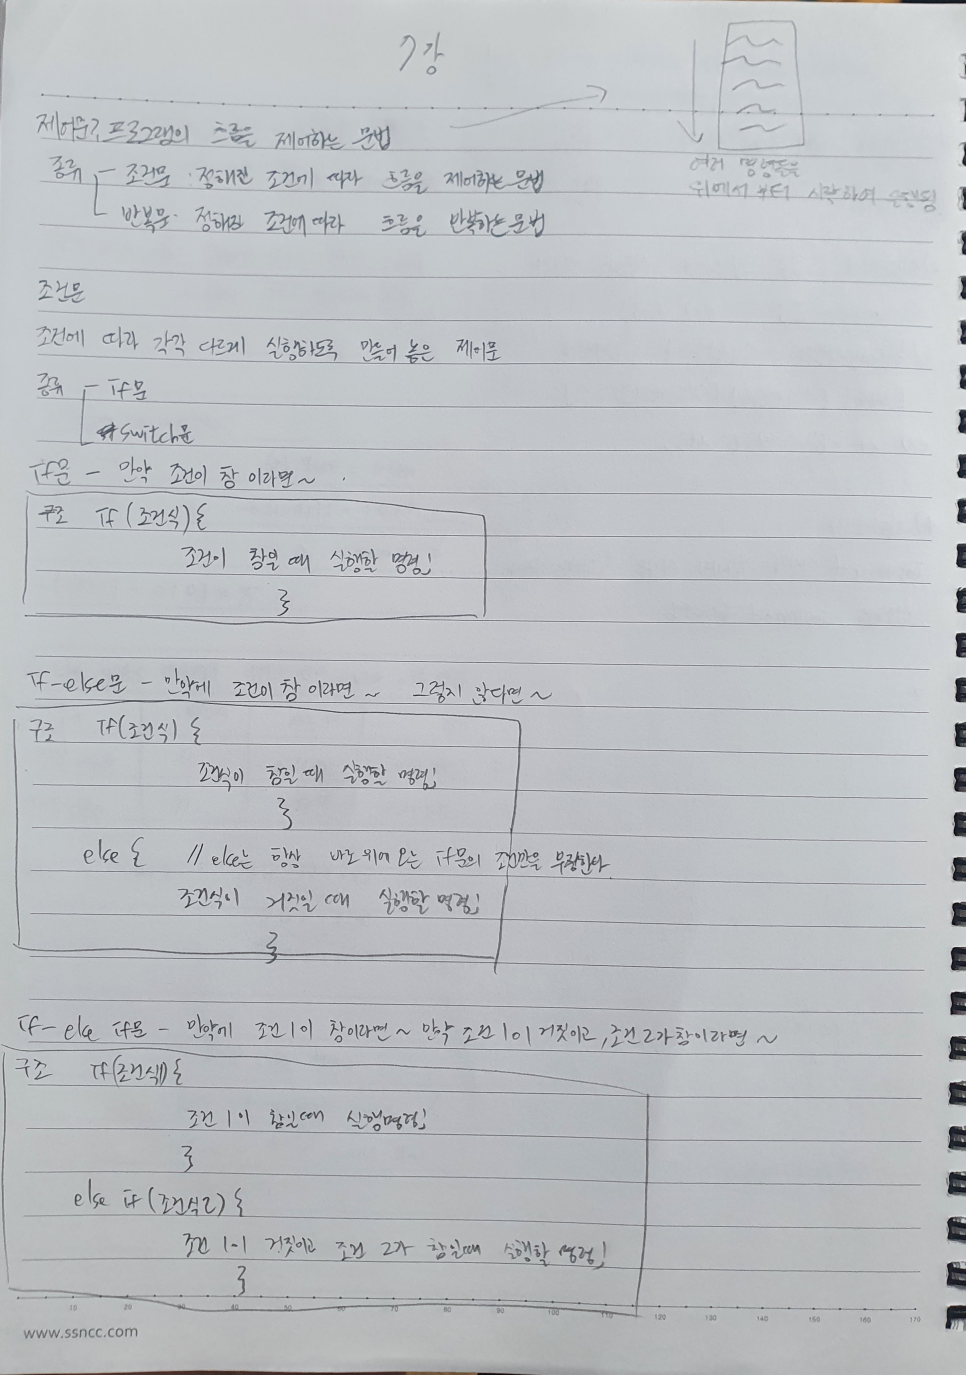 7강
제어문? 프로그램의 흐름을 제어하는 문법
여러 명령들을
위에서 부터 시작하여 실행됨
종류 - 조건문 · 정해진 조건에 따라 흐름을 제어하는 문법
반복문 · 정해진 조건에 따라 흐름을 반복하는 문법
조건문
조건에 따라 각각 다르게 실행하도록 만들어 놓은 제어문
종류 - If문
switch문
If문 - 만약 조건이 참 이라면~
구조 If (조건식) {
조건이 참일 때 실행할 명령;
}
If-else문 - 만약에 조건이 참 이라면 ~ 그렇지 않다면 ~
구조 If(조건식) {
조건식이 참일 때 실행할 명령;
}
else { // else는 항상 바로 위에 오는 If문의 조건만을 부정한다
조건식이 거짓일 때 실행할 명령;
}
If- else If문 - 만약에 조건1이 참이라면 ~ 만약 조건1이 거짓이고, 조건2가 참이라면 ~
구조 If(조건식1) {
조건1이 참일때 실행명령;
}
else If (조건식2) {
조건1이 거짓이고 조건2가 참일때 실행할 명령;
}
10 20 30 40 50 60 70 80 90 100 110 120 130 140 150 160 170
www.ssncc.com